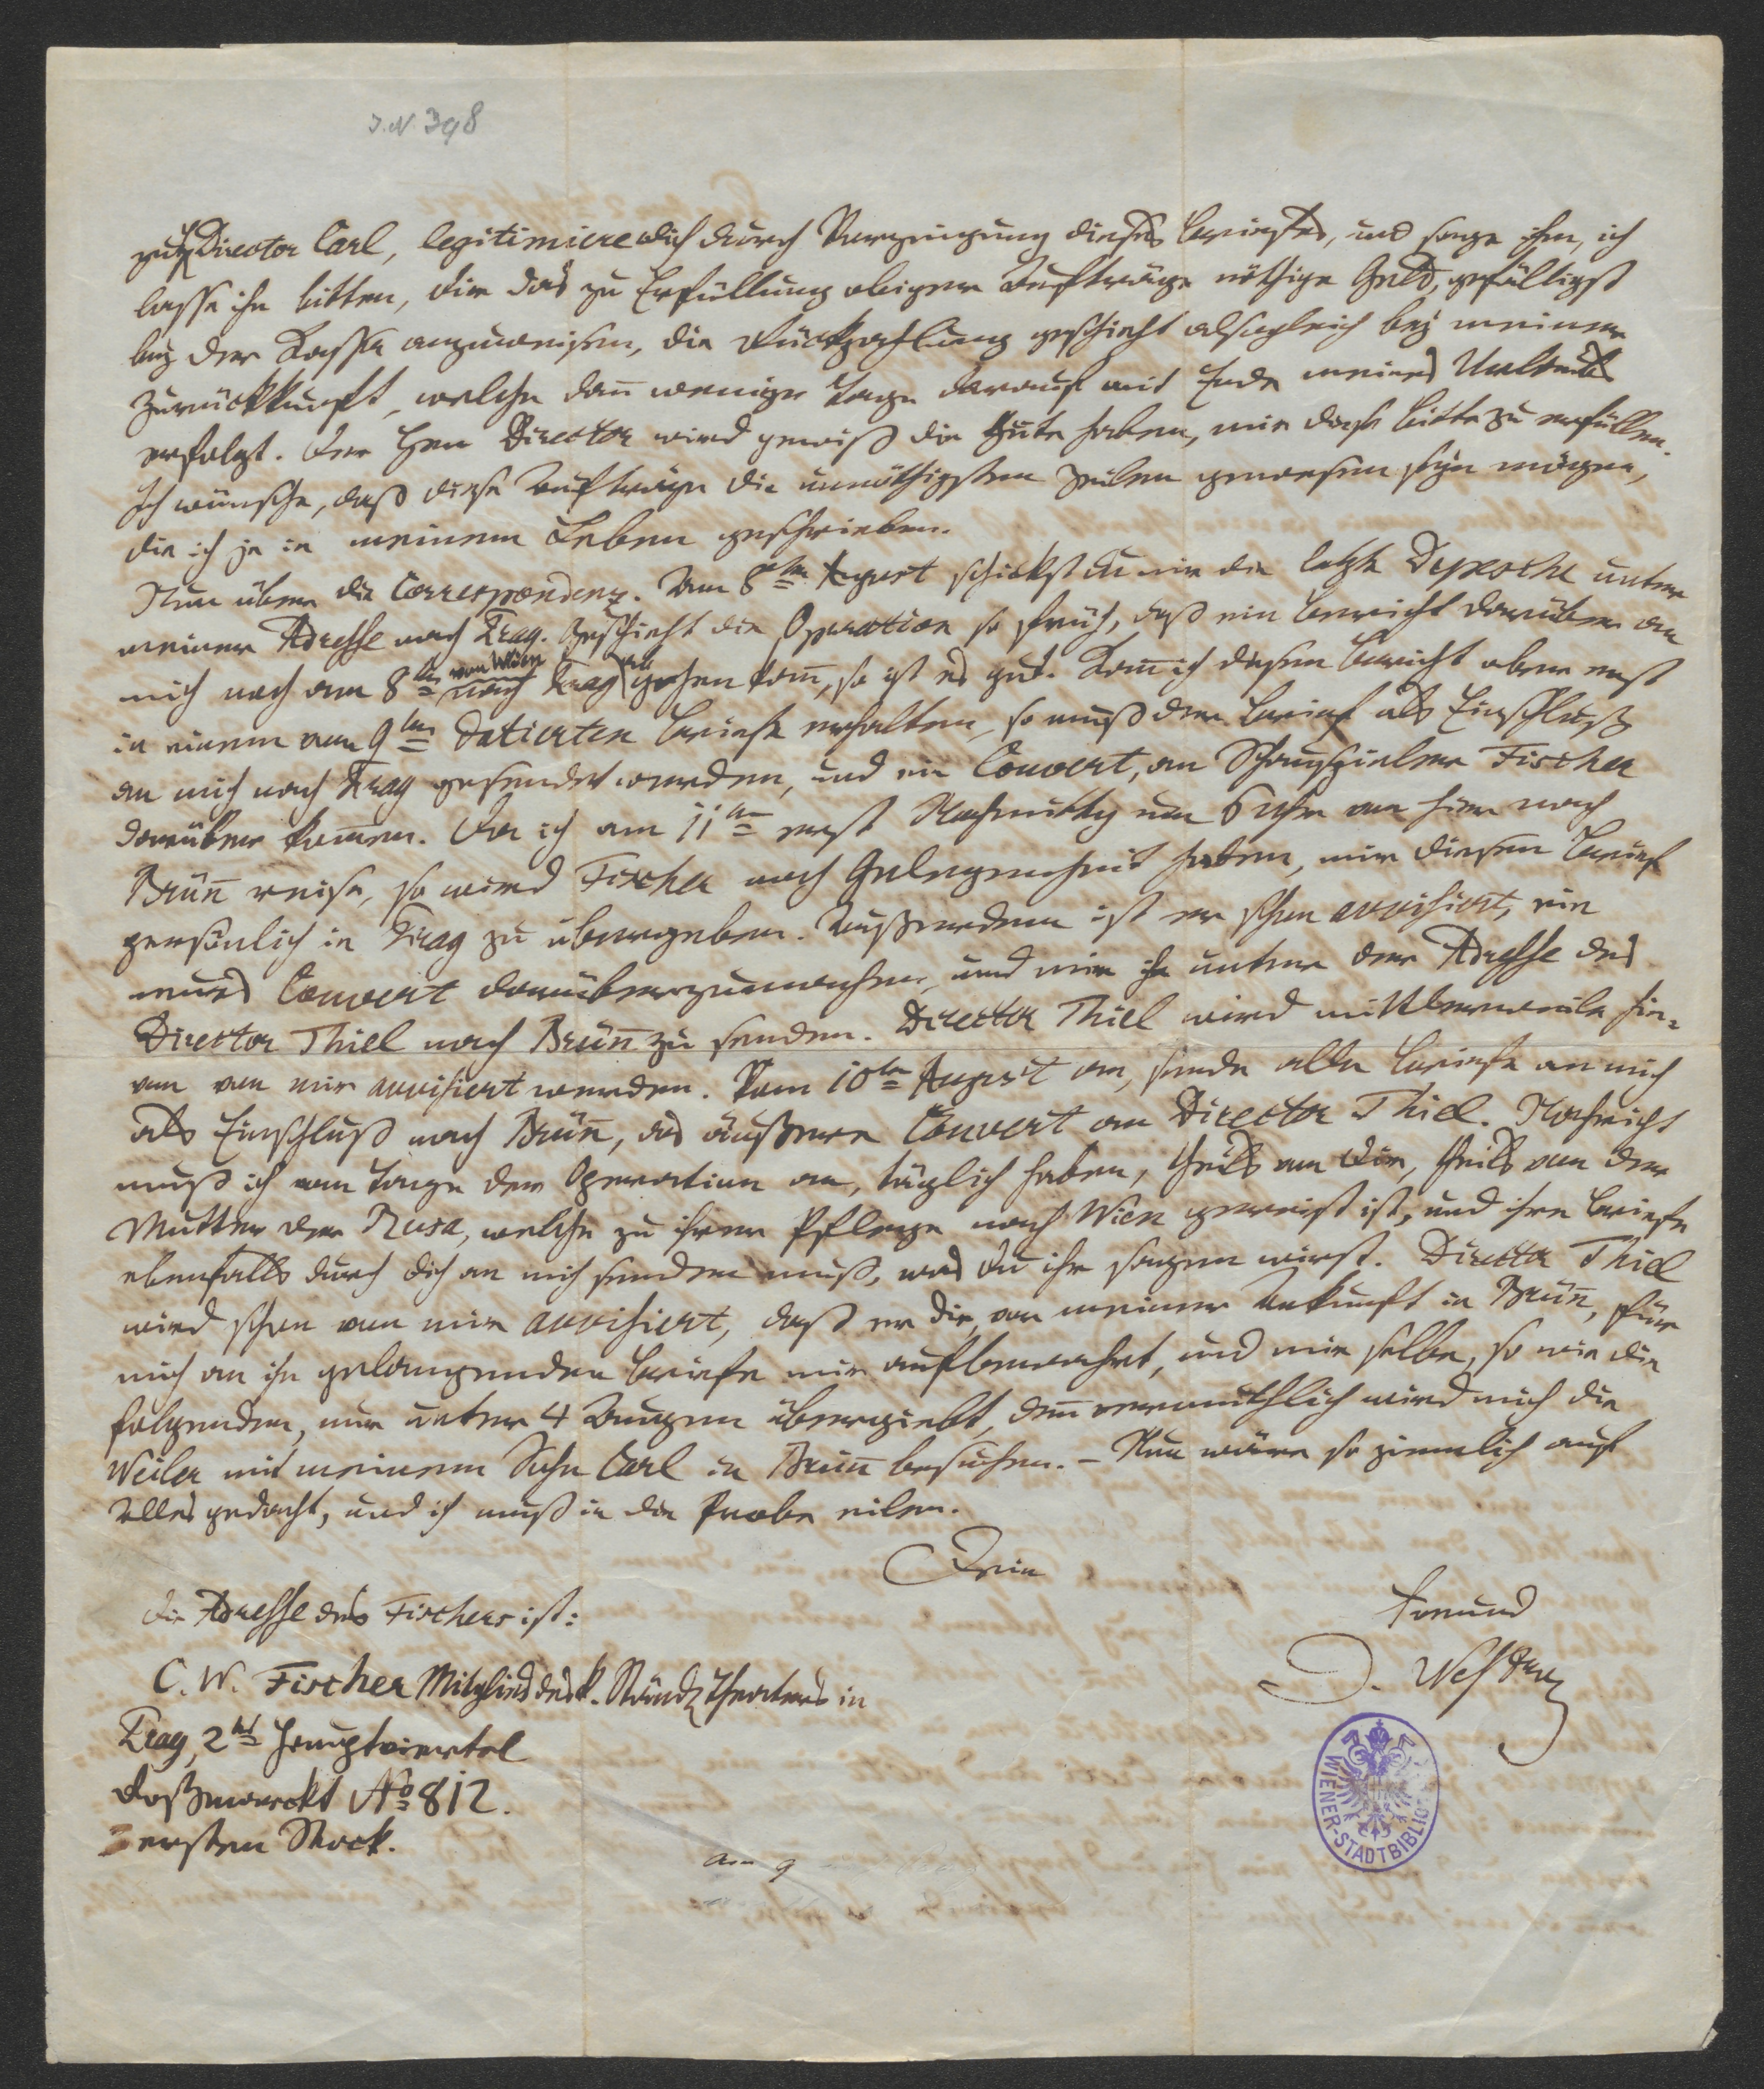 I.N. 398
zu H Director Carl, legitimiere dich durch Vorzeigung dieses Briefes, und sage ihm, ich
lasse ihn bitten, dir das zu Erfüllung obiger Aufträge nöthige Geld, gefälligst
bey der Kasse anzuweisen, die Rückzahlung geschieht alsogleich bey meiner
Zurückkunft, welche dañ wenige Tage darauf mit Ende meines Urlaubs
erfolgt. Der Herr Director wird gewiß die Güte haben, mir diese Bitte zu erfüllen.
Ich wünsche, daß diese Aufträge die unnöthigsten Zeilen gewesen seyn mögen,
die ich je in meinem Leben geschrieben.
Nun über die Correspondenz. Am 8ten August schickst du mir die letzte Depesche unter
meiner Adresse nach Prag. Geschieht die Operation so früh, daß ein Bericht darüber an
mich noch am 8ten von Wien nach Prag abgehen kañ, so ist es gut. Kañ ich diesen Bericht aber erst
in einem am 9ten datierten Briefe erhalten, so muß der Brief als Einschluß
an mich nach Prag gesendet werden, und ein Couvert, an Schauspieler Fischer
darüber kom̄en. Da ich am 11ten erst Nachmittag um 6 Uhr von hier nach
Brün̄ reise, so wird Fischer noch Gelegenheit haben, mir diesen Brief
persönlich in Prag zu übergeben. Außerdem ist er schon avvisiert, ein
neues Couvert darüberzumachen, und mir ihn unter der Adresse des
Director Thiel nach Brün̄ zu senden. Director Thiel wird mittlerweile hie-
von von mir avvisiert werden. Vom 10ten August an, sende alle Briefe an mich
als Einschluß nach Brün̄, das äußere Couvert an Director Thiel. Nachricht
muß ich vom Tage der Operation an, täglich haben, theils von dir, theils von der
Mutter der Rusa, welche zu ihrer Pflege nach Wien gereist ist, und ihre Briefe
ebenfalls durch dich an mich senden muß, was du ihr sagen wirst. Director Thiel
wird schon von mir avvisiert, daß er die, vor meiner Ankunft in Brün̄, für
mich an ihn gelangenden Briefe mir aufbewahrt, und mir selbe, so wie die
folgenden, nur unter 4 Augen übergiebt, den̄ vermuthlich wird mich die
Weiler mit meinem Sohn Carl in Brün̄ besuchen. – Nun wäre so ziemlich auf
Alles gedacht, und ich muß in die Probe eilen.
Dein
Freund
J. Nestroy
die Adresse des Fischers ist:
C. W. Fischer Mitglied des k. Ständ. Theaters in
Prag, 2tes Hauptviertel
Roßmarckt No 812.
ersten Stock.
am 9
WIENER-STADTBIBLIO